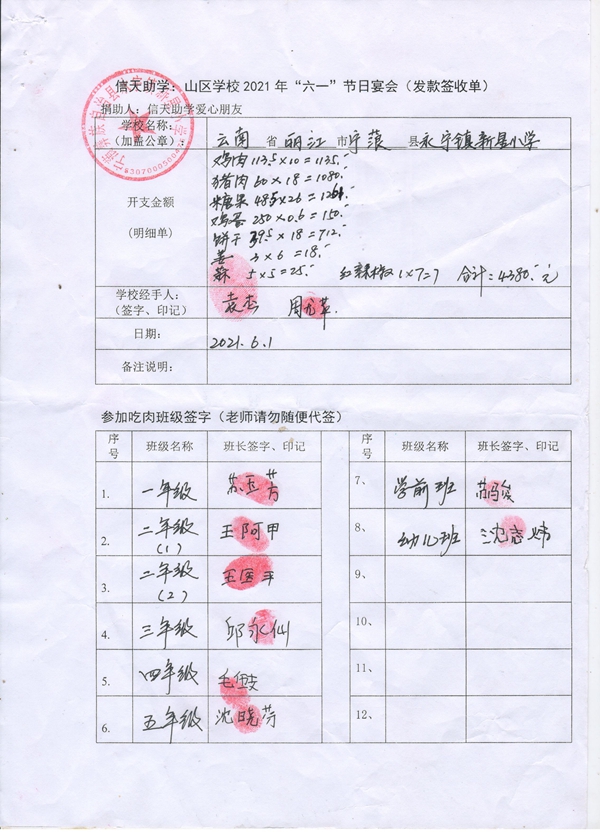 信天助学：山区学校2021年“六一”节日宴会（发款签收单）
捐助人：信天助学爱心朋友
学校名称：
（加盖公章）：
云南 省 丽江 市 宁蒗 县 永宁镇新星小学
开支金额
（明细单）
鸡肉 113.5×10=1135.
猪肉 60×18=1080.
糖果 48.5×26=1261.
鸡蛋 250×0.6=150.
饼干 39.5×18=712.
姜 3×6=18.
蒜 5×5=25. 红辣椒 1×7=7 合计:4380.元
学校经手人：
（签字、印记）
袁杰 周龙苹.
日期：
2021.6.1
备注说明：
参加吃肉班级签字（老师请勿随便代签）
序号 班级名称 班长签字、印记 序号 班级名称 班长签字、印记
1. 一年级 苏玉芳 7、 学前班
2. 二年级（1） 王阿甲 8、 幼儿班 沈志
3. 二年级（2） 王国平 9、
4. 三年级 邱永仙 10、
5. 四年级 毛 11、
6. 五年级 沈晓芳 12、